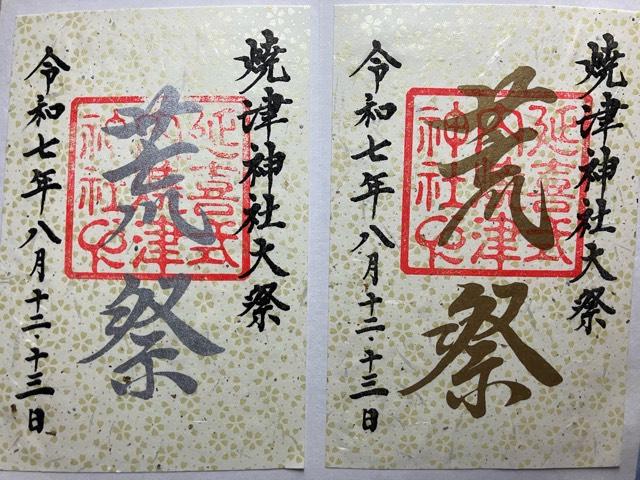 焼津神社大祭
荒祭
延喜式
内焼津
神社之印
令和七年八月十二・十三日
焼津神社大祭
荒祭
延喜式
内焼津
神社之印
令和七年八月十二・十三日